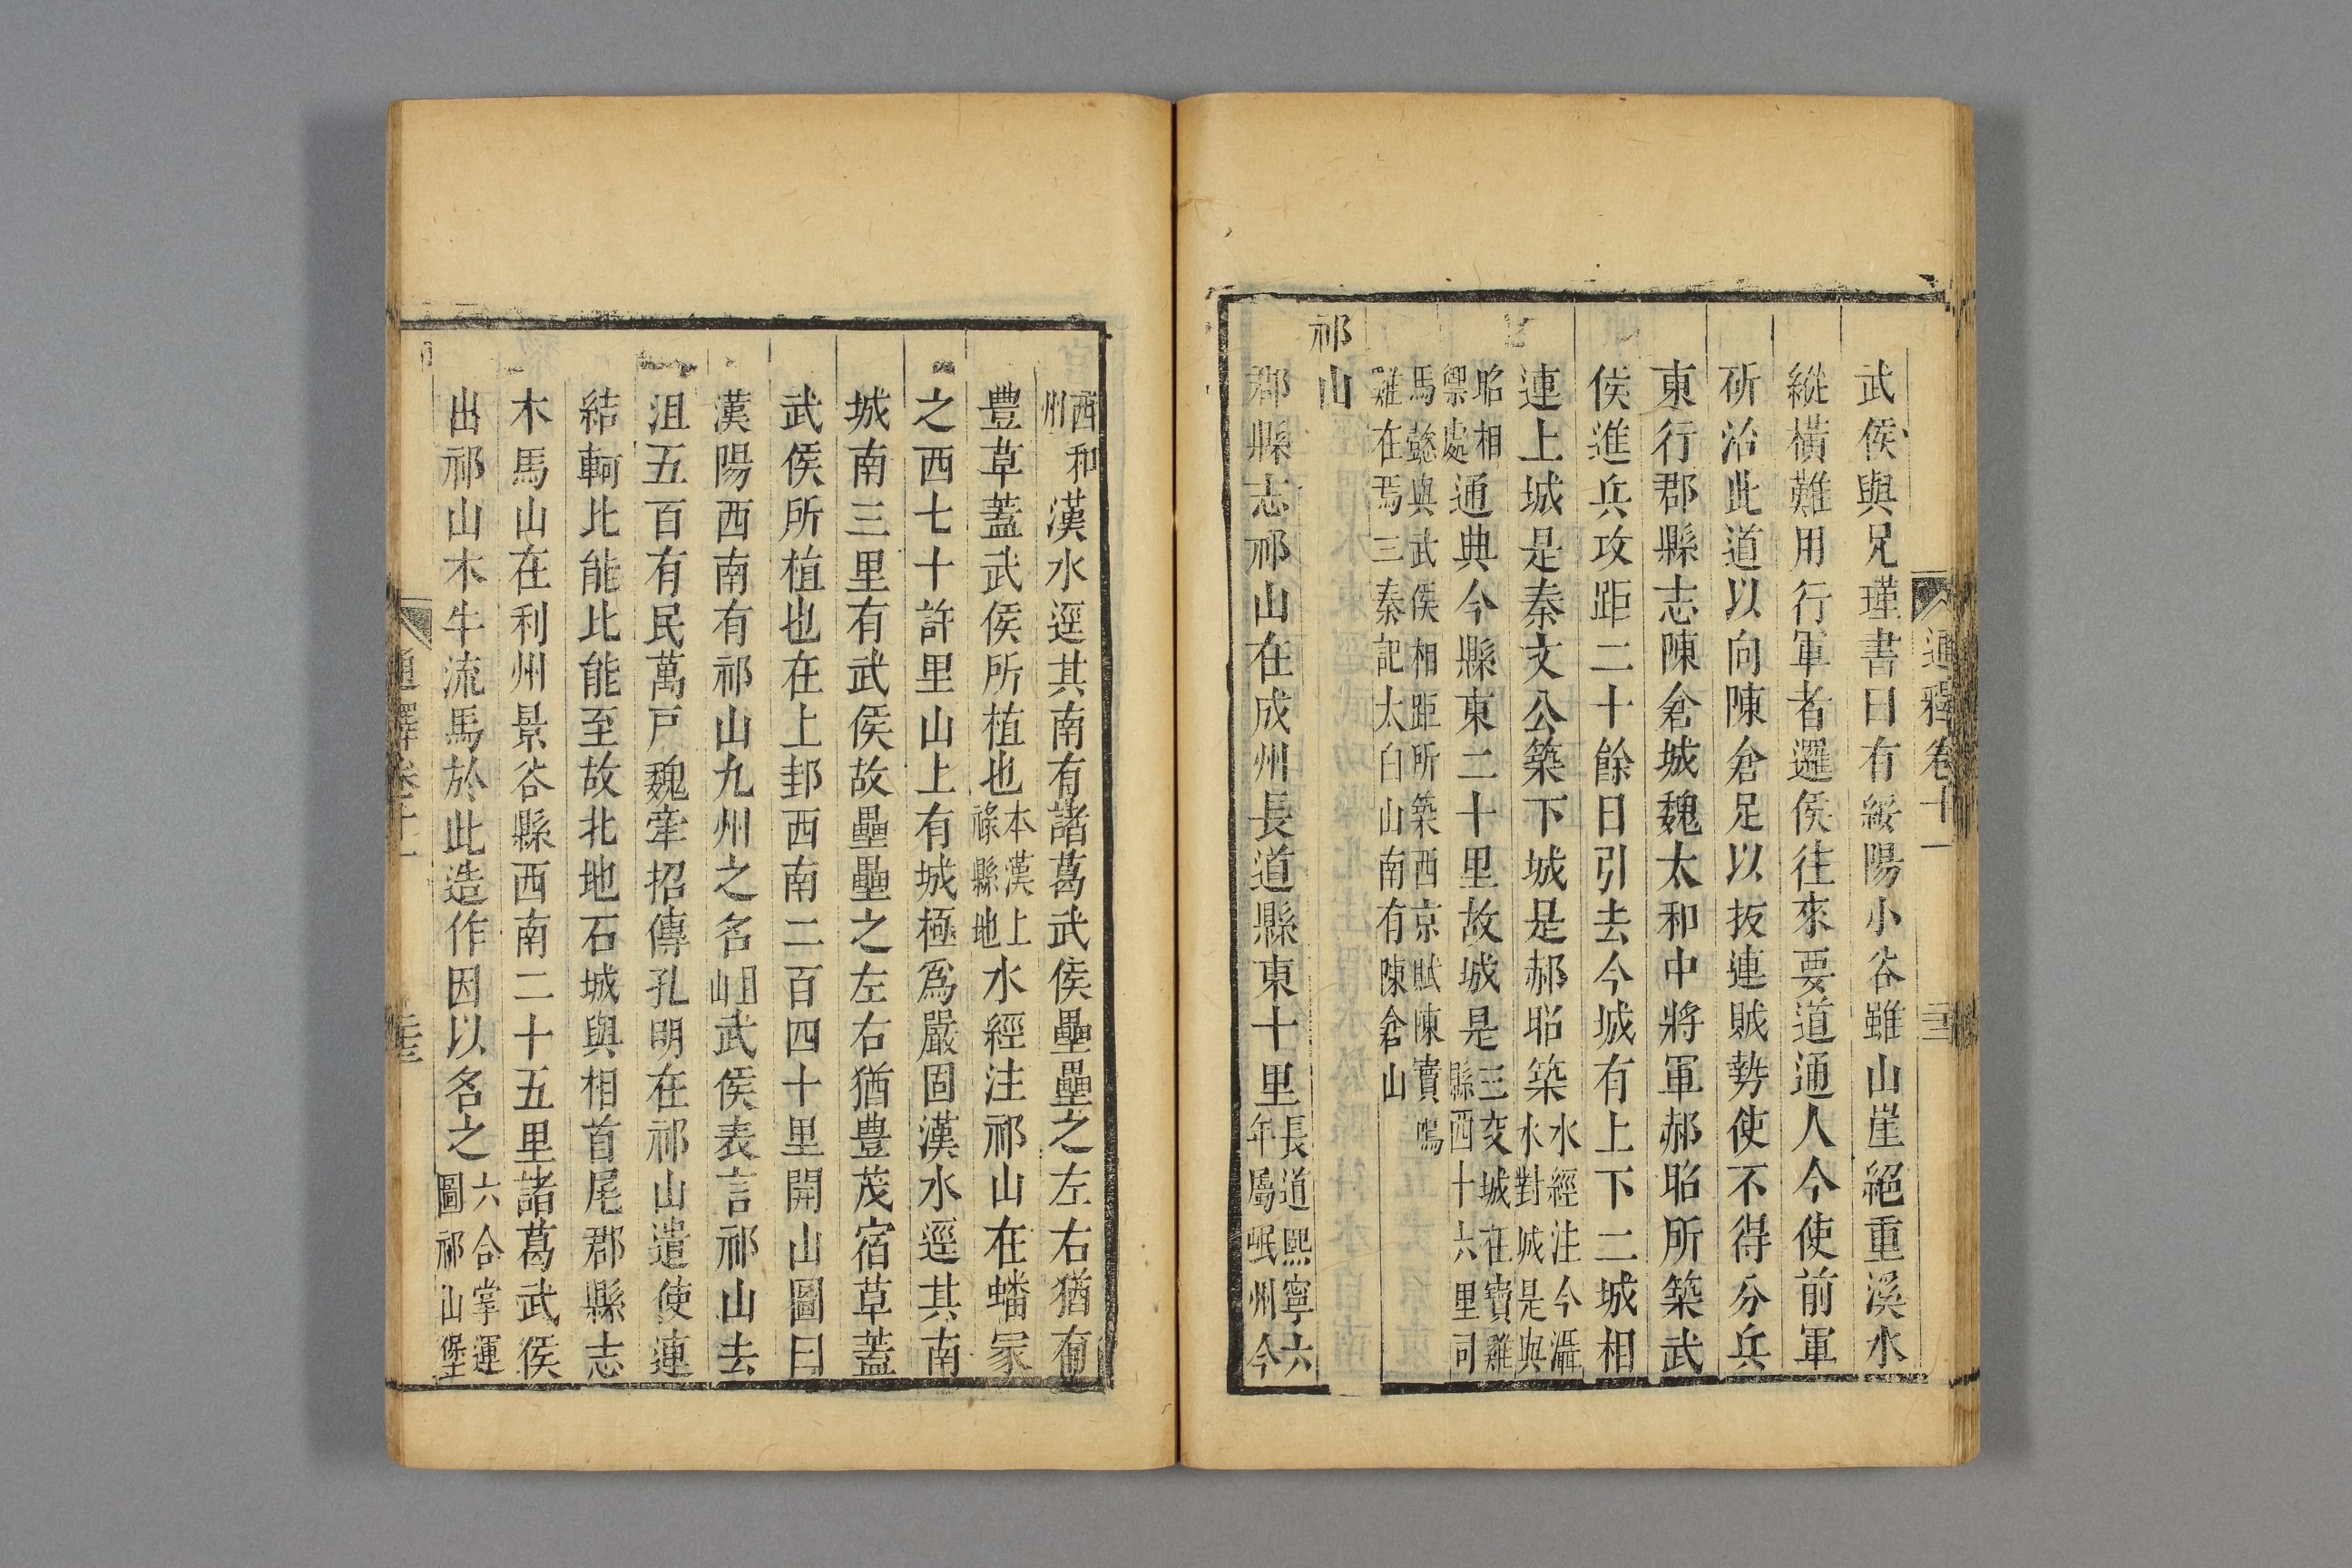 通釋卷十一
武侯與兄瑾書曰有綏陽小谷雖山崖絕重溪水
縱橫難用行軍者邏侯往來要道通人今使前軍
斫治此道以向陳倉足以扳連賊勢使不得分兵
東行郡縣志陳倉城魏太和中將軍郝昭所築武
侯進兵攻距二十餘日引去今城有上下二城相
連上城是秦文公築下城是郝昭築水經注今灄水對城是與
昭相禦處通典今縣東二十里故城是三交城在寶雞縣西十六里司
馬懿與武侯相距所築西京賦陳寶鳴雞在焉三秦記太白山南有陳倉山
祁山
郡縣志祁山在成州長道縣東十里長道熙寧六年屬岷州今
西和州漢水逕其南有諸葛武侯壘壘之左右猶有
豊草蓋武侯所植也本漢上祿縣地水經注祁山在嶓冢
之西七十許里山上有城極爲嚴固漢水逕其南
城南三里有武侯故壘壘之左右猶豊茂宿草蓋
武侯所植也在上邽西南二百四十里開山圖曰
漢陽西南有祁山九州之名岨武侯表言祁山去
沮五百有民萬戸魏牽招傳孔明在祁山遣使連
結軻比能比能至故北地石城與相首尾郡縣志
木馬山在利州景谷縣西南二十五里諸葛武侯
出祁山木牛流馬於此造作因以名之六合掌運圖祁山堡
通釋卷十一